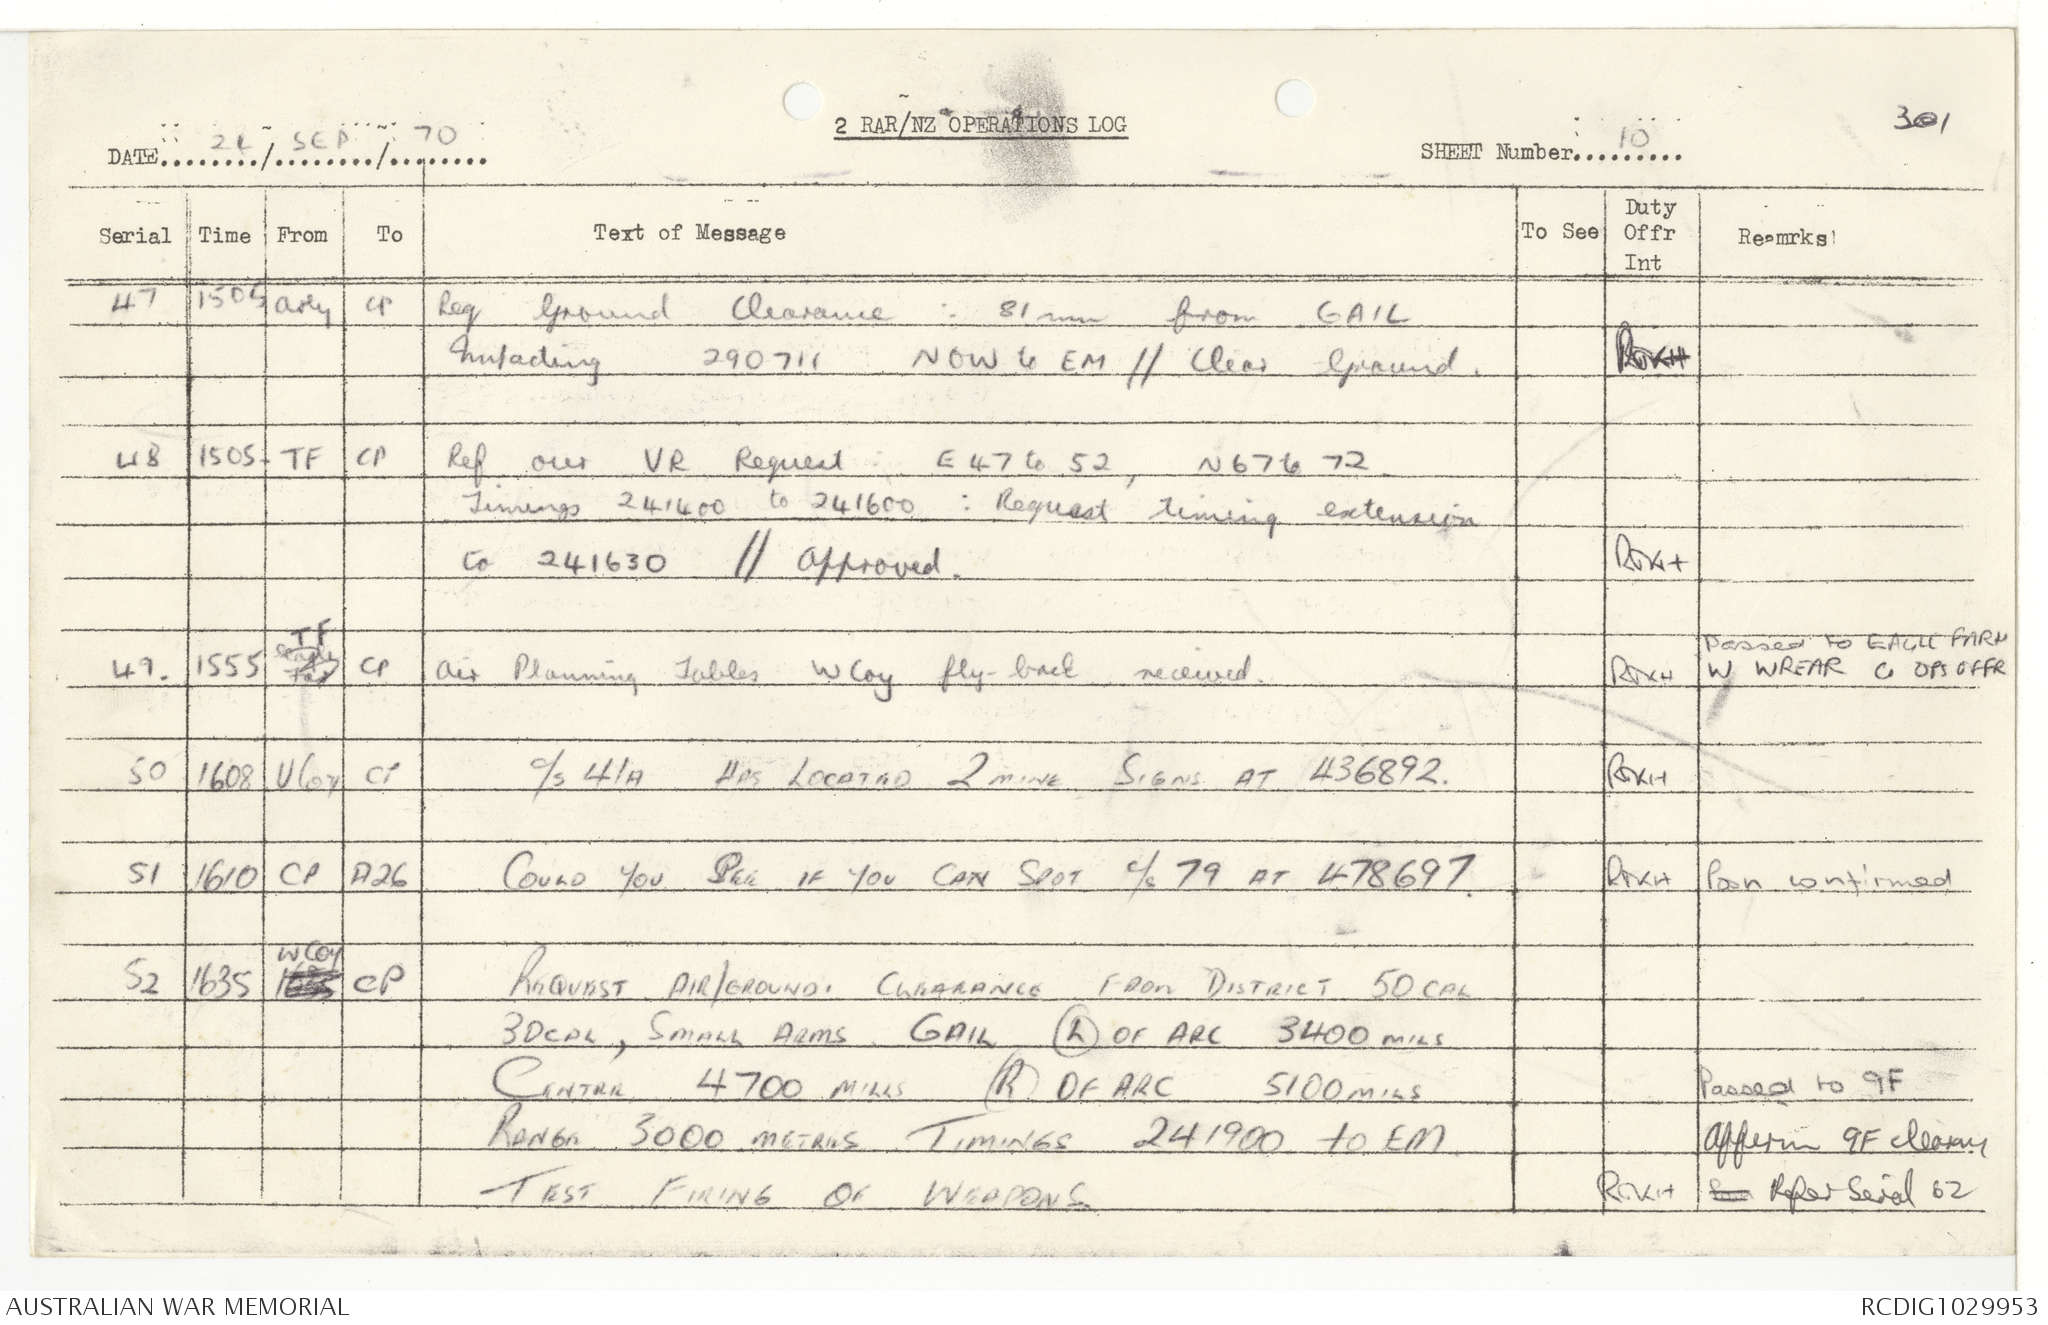 2 RAR/NZ OPERATIONS LOG
301
DATE 24/SEP/70
SHEET Number 10
Serial Time From To Text of Message To See Duty Offr Int Reamrks
47 1505 Arty CP Req Ground Clearance : 81 mm from GAIL
Impacting 290711 NOW to EM // Clear Ground. RJKH
48 1505 TF CP Ref our VR Request : E 47 to 52, N 67 to 72
Timings 241400 to 241600 : Request timing extension
to 241630 // Approved. RJKH
TF
Passed to EAGLE FARM
49. 1555 CP Air Planning Tables W Coy fly-back received. RJKH W WREAR C OPS OFFR
50 1608 V Coy CP c/s 41A HAS LOCATED 2 MINE SIGNS AT 436892. RJKH
51 1610 CP A26 COULD YOU SEE IF YOU CAN SPOT c/s 79 AT 478697. RJKH Posn confirmed
W Coy
52 1635 CP REQUEST AIR/GROUND CLEARANCE FROM DISTRICT 50 CAL
30 CAL, SMALL ARMS GAIL (L) OF ARC 3400 MILS
CENTRE 4700 MILLS (R) OF ARC 5100 MILS Passed to 9F
RANGE 3000 METRES TIMINGS 241900 to EM Affirm 9F cleared
TEST FIRING OF WEAPONS. RJKH Refer Serial 62
AUSTRALIAN WAR MEMORIAL
RCDIG1029953